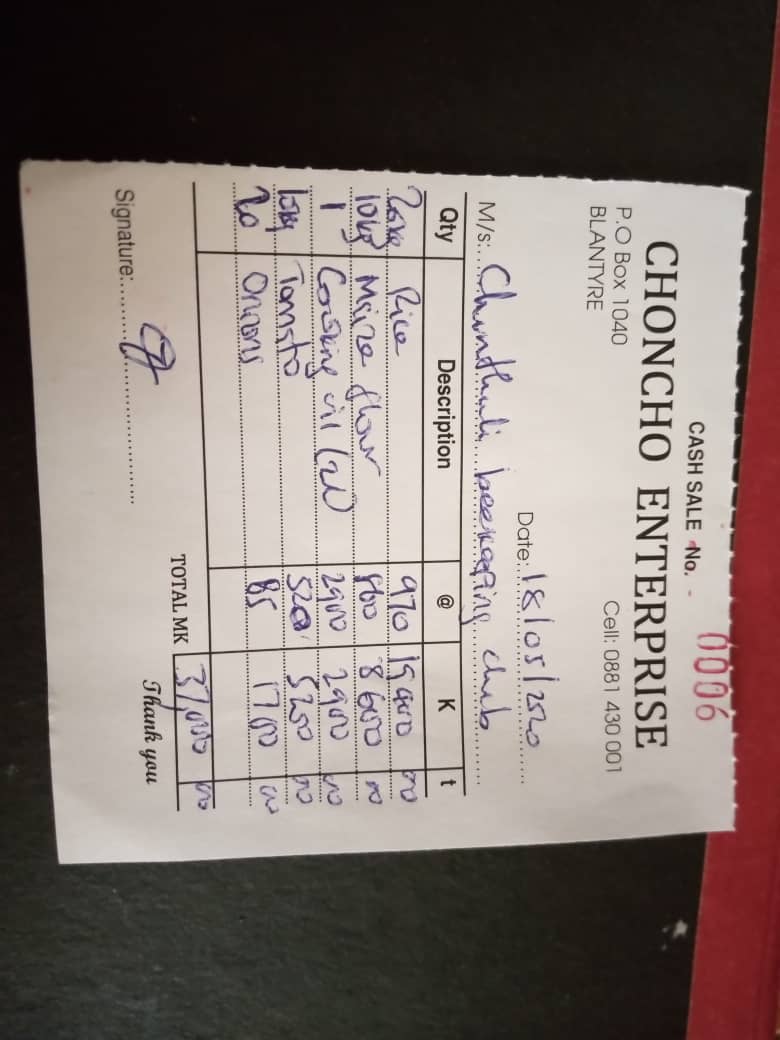 CASH SALE No. - 0006
CHONCHO ENTERPRISE
P.O Box 1040 Cell: 0881 430 001
BLANTYRE
Date: 18/05/2020
M/s: Chunthuli beekeeping club
Qty Description @ K t
20kg Rice 970 19400 00
10kg Maize flour 860 8600 00
1 Cooking oil (2L) 2900 2900 00
10kg Tomato 520 5200 00
20 Onions 85 1700 00
TOTAL MK 37,000 00
Signature: Thank you